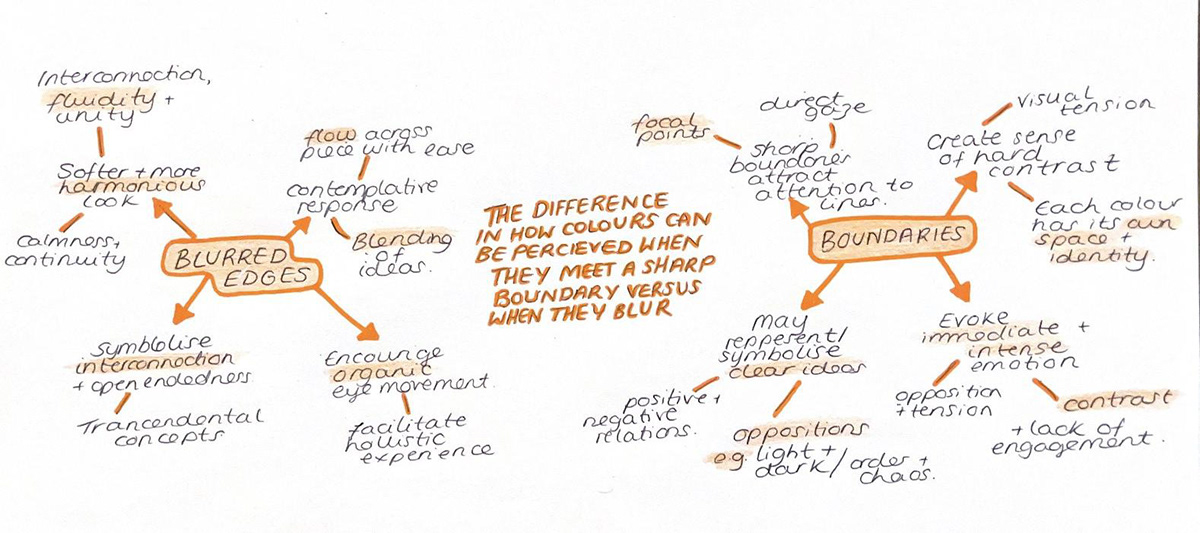 Interconnection,
fluidity +
unity
Softer + more
harmonious
look
calmness +
continuity
BLURRED
EDGES
flow across
piece with ease
contemplative
response
Blending
of
ideas.
symbolise
interconnection
+ open endedness
Trancendental
concepts
Encourige
organic
eye movement.
facilitate
holistic
experience
THE DIFFERENCE
IN HOW COLOURS CAN
BE PERCIEVED WHEN
THEY MEET A SHARP
BOUNDARY VERSUS
WHEN THEY BLUR
focal
points
direct
gaze
sharp
boundaries
attract
attention to
lines.
visual
tension
Create sense
of hard
contrast
Each colour
has its own
space +
identity.
BOUNDARIES
May
reppesent/
symbolise
clear ideas
positive +
negative
relations.
oppositions
e.g. light +
dark/order +
chaos.
Evoke
immediate +
intense
emotion
opposition
+ tension
contrast
+ lack of
engagement.